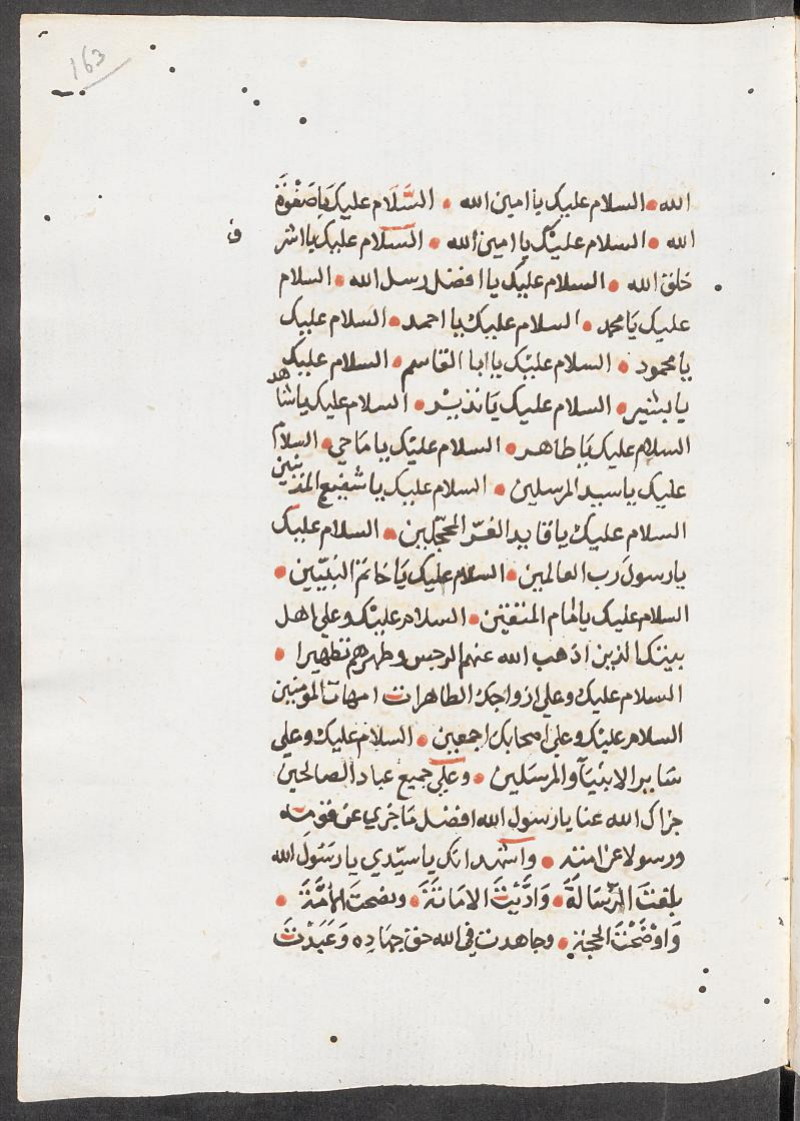 163
الله • السلام عليك يا امين الله • السَّلَام عليك يَا صَفْوَةَ
الله • السلام عليك يا امين الله • السلام عليك يا اشر
ف
خلق الله • السلام عليك يا افضل رسل الله • السلام
عليك يَا محمد • السلام عليك يا احمد • السلام عليك
يا محمود • السلام عليك يا ابا القاسم • السلام عليك
يا بشير • السلام عليك يَا نذير • السلام عليك يا شاهد
السلام عليك يَا طاهر • السلام عليك يا مَاحي • السلام
عليك يا سيد المرسلين • السلام عليك يا شفيع المذنبين
السلام عليك يا قايد الغرّ المحجّلين • السلام عليك
يا رسولَ رب العالمين • السلام عليك يَا خاتم النبيّين •
السلام عليك يا امام المتقين • السلام عليك وعلي اهل
بيتك الذين اذهب الله عنهم الرجس وطهرهم تطهيرا •
السلام عليك وعلي ازواجك الطاهرات امهات المومنين
السلام عليك وعلي اصحابك اجمعين • السلام عليك وعلي
سَاير الانبيآ والمرسَلين • وعلي جميع عباد الصالحين
جزاك الله عنا يا رسول الله افضل مَا جزي عن قومه
ورسولا عن امته • واشهد انك يا سيّدي يا رسَوُل الله
بلغتَ الرّسَالَةَ • وَادَّيْتَ الامَانَةَ • ونصحتَ الأمَّةَ •
وَاوْضَحْتَ الحجة • وجاهدت في الله حق جهاده وَعَبَدْتَ